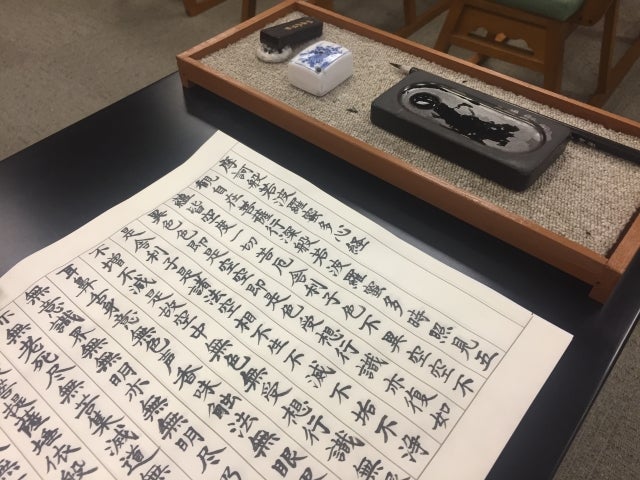 摩訶般若波羅蜜多心経
観自在菩薩行深般若波羅蜜多時照見五
蘊皆空度一切苦厄舎利子色不異空空不
異色色即是空空即是色受想行識亦復如
是舎利子是諸法空相不生不滅不垢不浄
不増不減是故空中無色無受想行識無
耳鼻舌身意無色声香味触法無眼
無意識界無無明亦無無明尽乃
亦無老死尽無苦集滅道無
菩提薩埵依般